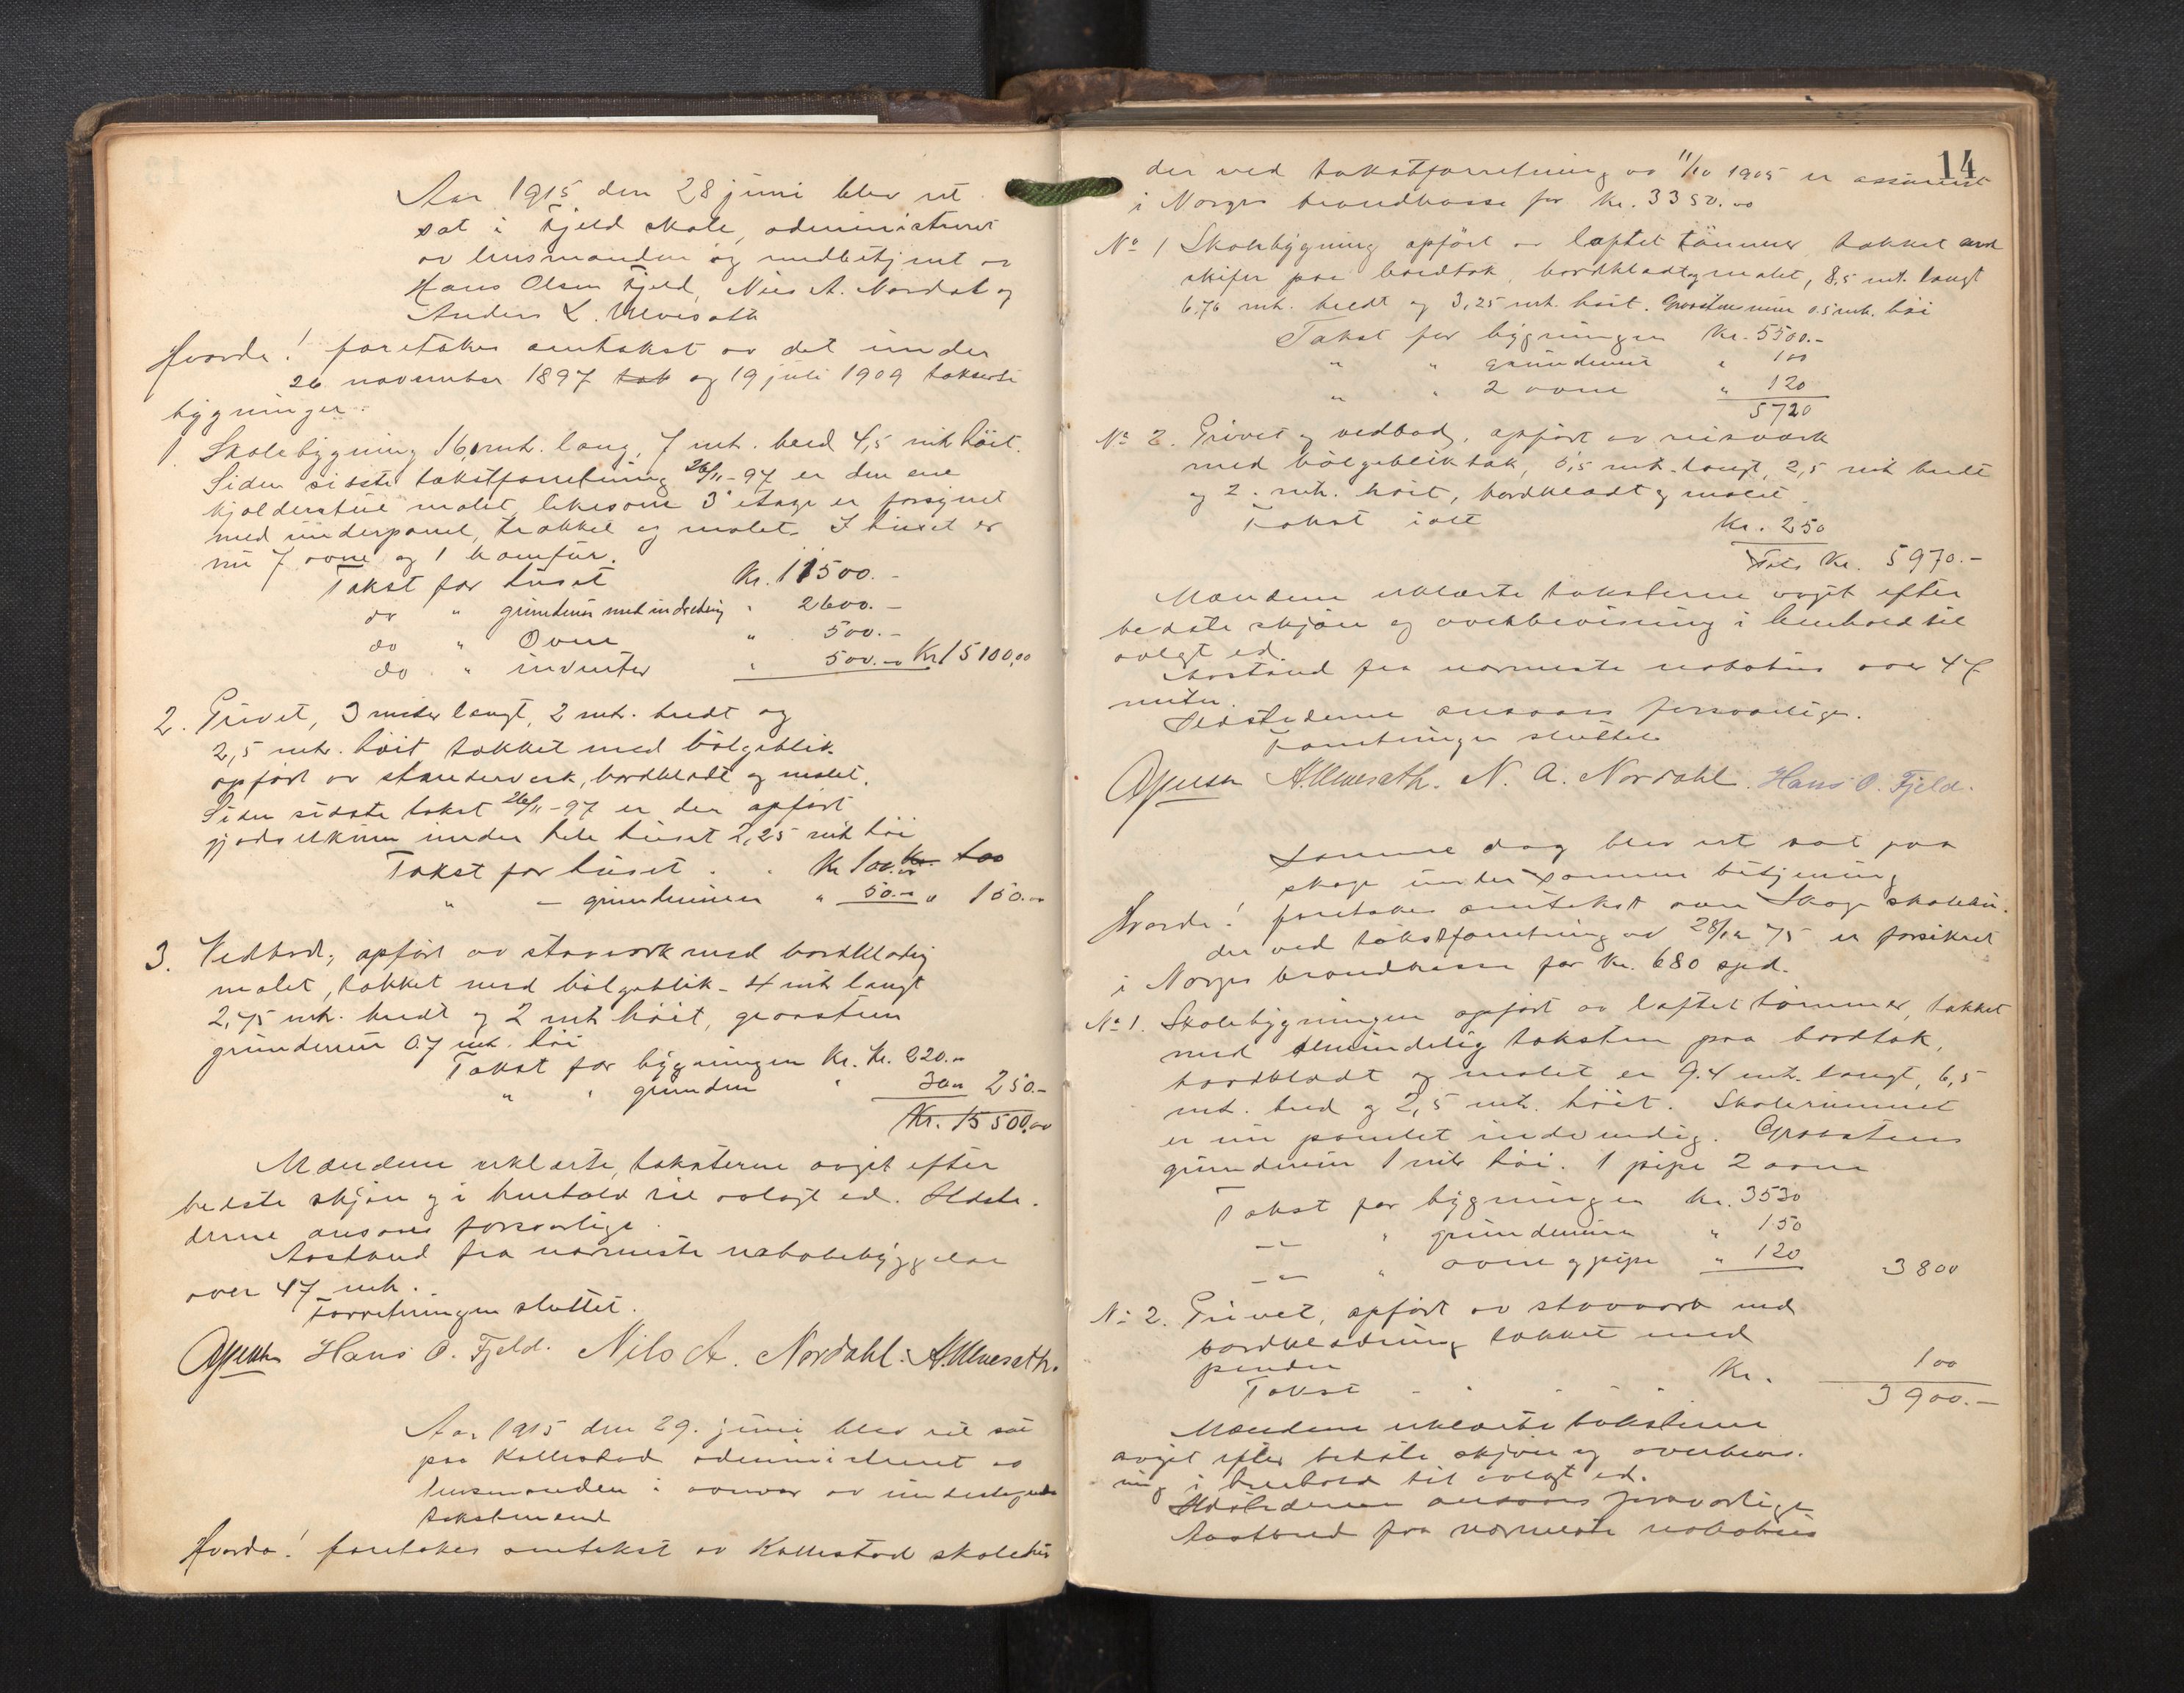 Aar 1915 den 28 juni blev ret
sat i Fjeld skole, administreret
av lensmanden og medbetjent av
Hans Olsen Fjeld, Nils A. Nordal og
Anders L. Ulvesæth
Hvorda! foretokes omtakst av det under
26 november 1897 tak og 19 juli 1909 takserte
bygninger.
1. Skolebygning 16,0 mtr. lang, 7 mtr. bred 4,5 mtr høit.
Siden sidste takstforretning 26/11-97 er den ene
kjelderstue malet likesom 3' etage er forsynet
med underpanel, trækket og malet. I huset er
nu 7 ovne og 1 komfur.
Takst for huset Kr. 11500.-
do " grundmur med indredning " 2600.-
do " Ovne " 500.-
do " inventar " 500.- Kr 15100,00
2. Privet, 3 meter langt, 2 mtr. bredt og
2,5 mtr. høit tækket med bølgeblik
opført av stenderverk, bordklædt og malet.
Siden sidste takst 26/11-97 er der opført
gjødselkum under hele huset 2,25 mtr høi
Takst for huset . . Kr 100.- Kr. 100
" - grundmuren " 50.- " 150.-
3. Vedbod, opført av stavverk med bordklædning
malet, tækket med bølgeblik - 4 mtr langt
2,75 mtr. bredt og 2 mtr høit, graasten
grundmur 0.7 mtr. høi
Takst for bygningen Kr. Kr. 220.-
" " grunden " 30.- 250.-
Kr. 15500,00
Mændene erklærte, taksterne avgit efter
bedste skjøn og i henhold til avlagt ed. Ildste-
derne ansaaes forsvarlige.
Avstand fra nærmeste nabobebyggelse
over 47 mtr.
Forretningen sluttet.
Hans O. Fjeld. Nils A. Nordahl. A. Ulvesæth.
Aar 1915 den 29. juni blev ret sat
paa Kallestad administreret av
lensmanden i nærvær av undertegnede
takstmænd
Hvorda! foretokes omtakst av Kallestad skolehus
14
der ved takstforretning av 11/10 1905 er assureret
i Norges brandkasse for Kr. 3350.00
No 1 Skolebygning opført av laftet tømmer, tækket med
skifer paa bordtak, bordklædt og malet, 8,5 mt. langt
6,76 mtr. bredt og 3,25 mtr. høit. Graastens mur 0.5 mtr. høi
Takst for bygningen Kr. 5500.-
" " grundmur " 100
" " 2 ovne " 120
5720
No 2. Privet og vedbod, opført av reisværk
med bølgebliktak, 5,5 mtr. langt, 2,5 mtr bredt
og 2. mtr. høit, bordklædt og malet.
Takst ialt Kr. 250
Kr. 5970.-
Mændene erklærte taksterne avgit efter
bedste skjøn og overbevisning i henhold til
avlagt ed.
Avstand fra nærmeste nabohus over 47
meter.
Ildstederne ansaaes forsvarlige.
Forretningen sluttet
A. Ulvesæth. N. A. Nordahl. Hans O. Fjeld.
Samme dag blev ret sat paa
Skoge under samme betjening
Hvorda! foretokes omtakst over Skoge skolehus
der ved takstforretning av 28/12 75 er forsikret
i Norges brandkasse for Kr. 680 spd.
No 1. Skolebygningen opført av laftet tømmer, tækket
med almindelig taksten paa bordtak,
bordklædt og malet er 9.4 mtr. langt, 6,5
mt. bred og 2,5 mtr. høit. Skolerummet
er nu panelet indvendig. Graastens
grundmur 1 mtr høi. 1 pipe 2 ovne
Takst for bygningen Kr. 3530
-"- " grundmuren " 150
-"- " ovne og pipe " 120 3800
No 2. Privet, opført av stavverk med
bordklædning tækket med
Takst - - - - Kr. 100
3900.-
Mændene erklærte taksterne
avgit efter bedste skjøn og overbevis-
ning i henhold til avlagt ed.
Ildstederne ansaaes forsvarlige
Avstand fra nærmeste nabohus